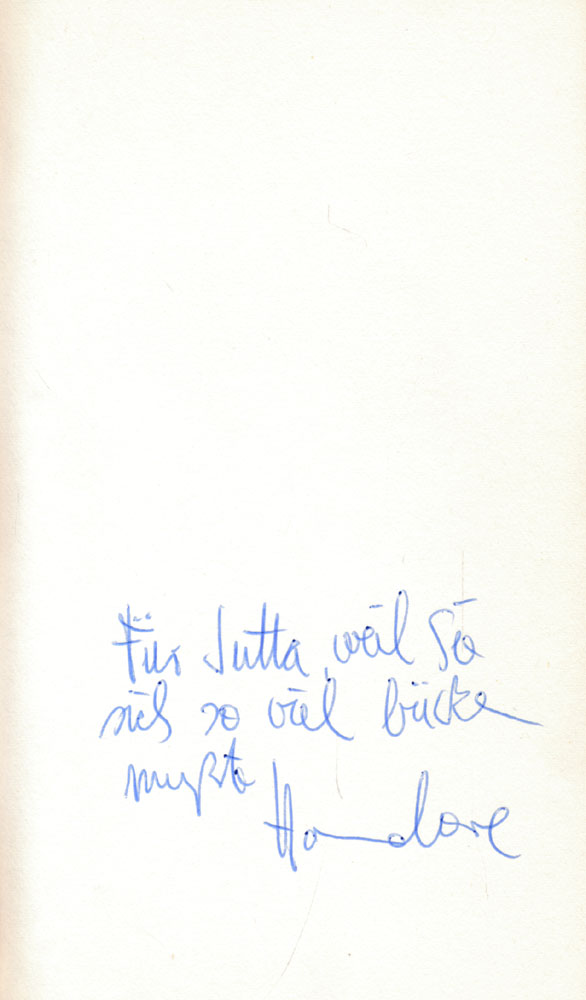 Für Jutta, weil Sie
sich so viel bücken
mußte
Hannelore